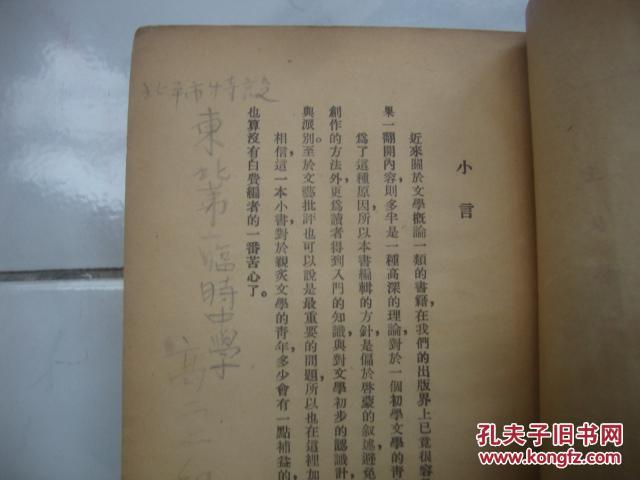 小言
近來關於文學概論一類的書籍，在我們的出版界上已竟很容
果一翻開內容，則多半是一種高深的理論，對於一個初學文學的青
爲了這種原因，所以本書編輯的方針是偏於啓蒙的叙述，避免
創作的方法外，更爲讀者得到入門的知識與對文學初步的認識計，
與派別。至於文藝批評也可以說是最重要的問題，所以也在這裡加
相信這一本小書，對於親炙文學的青年，多少會有一點補益的，
也算沒有白費編者的一番苦心了。
北平市特設
東北第一臨時中學
高二一組
孔夫子旧书网
KONGFZ.COM